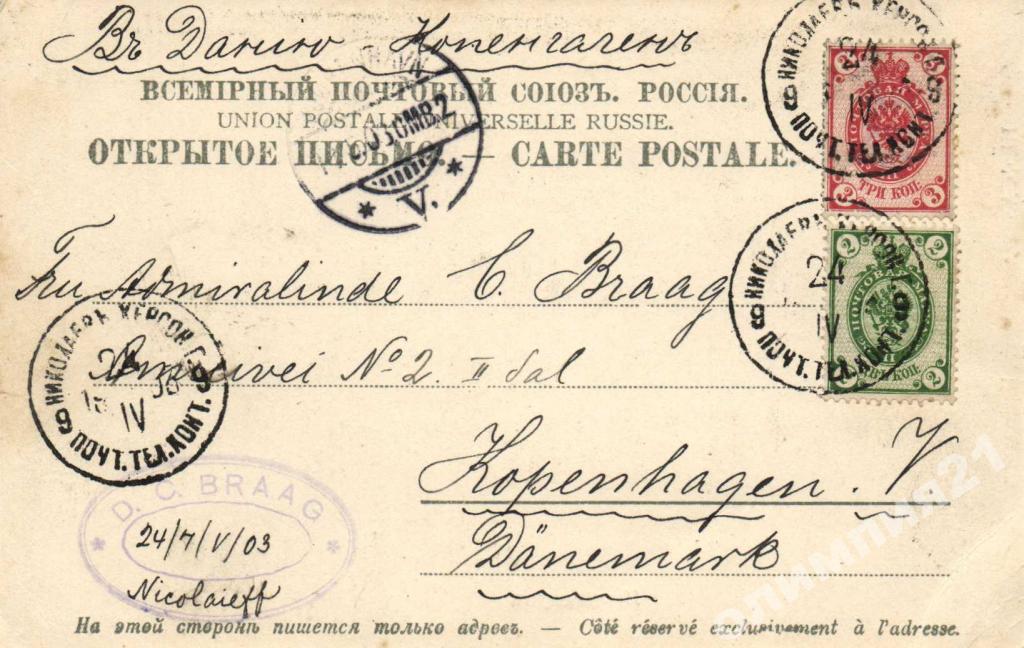 Въ Данію Копенгагенъ
ВСЕМІРНЫЙ ПОЧТОВЫЙ СОЮЗЪ. РОССІЯ.
UNION POSTALE UNIVERSELLE RUSSIE.
ОТКРЫТОЕ ПИСЬМО. — CARTE POSTALE.
НИКОЛАЕВЪ ХЕРСОН. 9
24
IV
ПОЧТ.ТЕЛ.КОНТ. 9
ТРИ КОП.
3 3
OMB.2
V.
Fru Admiralinde C. Braag
НИКОЛАЕВЪ ХЕРСОН. 9
24
IV
ПОЧТ.ТЕЛ.КОНТ. 9
2 2
ПОЧТОВАЯ МАРКА
ДВѢ КОП.
2 2
No 2. II Sal
НИКОЛАЕВЪ ХЕРСОН.Г. 9
IV
ПОЧТ.ТЕЛ.КОНТ. 9
Kopenhagen. V
Dänemark
D. C. BRAAG
24/7/V/03
Nicolaieff
На этой сторонѣ пишется только адресъ. — Côté réservé exclusivement à l'adresse.
олимпия21